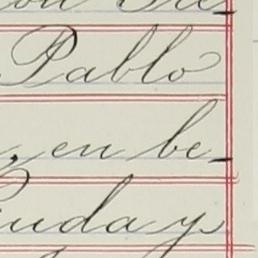 Pablo
, en be-
uda y